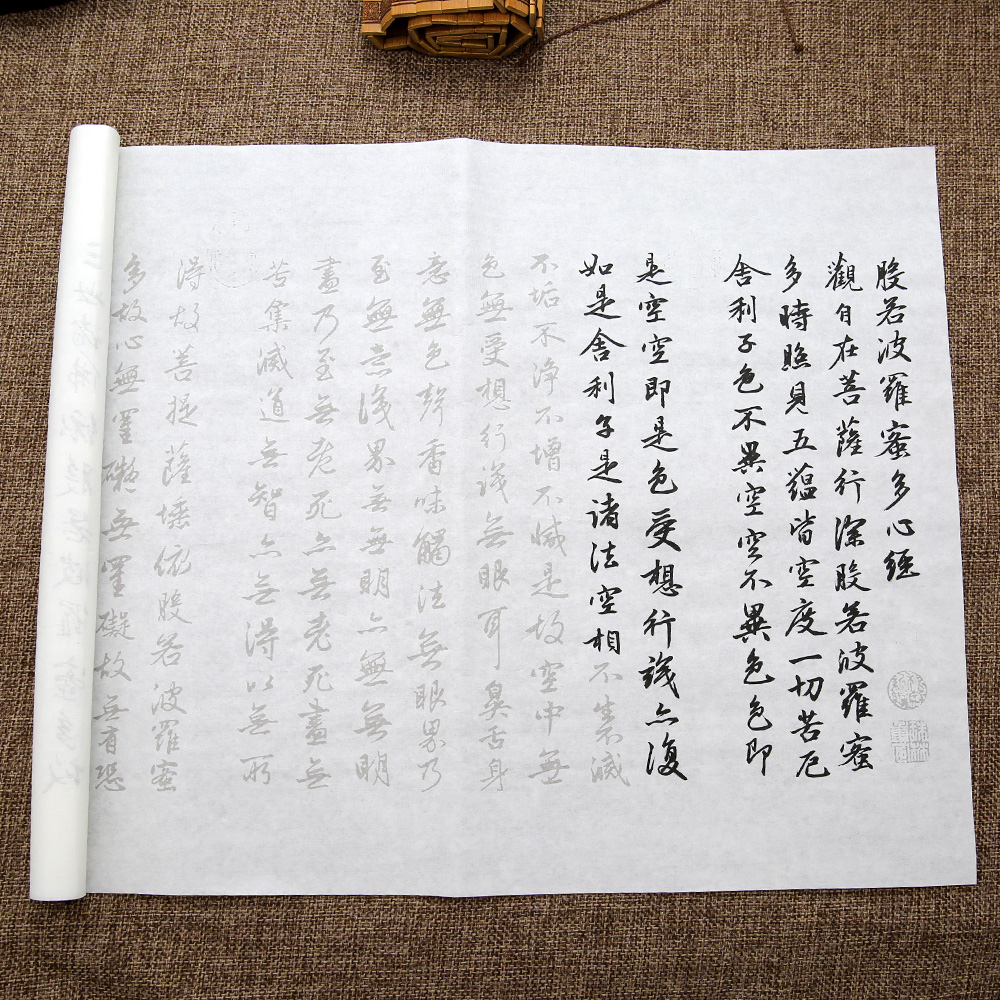 般若波羅蜜多心經
觀自在菩薩行深般若波羅蜜
多時照見五蘊皆空度一切苦厄
舍利子色不異空空不異色色即
是空空即是色受想行識亦復
如是舍利子是諸法空相不生不滅
不垢不淨不增不減是故空中無
色無受想行識無眼耳鼻舌身
意無色聲香味觸法無眼界乃
至無意識界無無明亦無無明
盡乃至無老死亦無老死盡無
苦集滅道無智亦無得以無所
得故菩提薩埵依般若波羅蜜
多故心無罣礙無罣礙故無有恐
三世諸佛依般若波羅蜜多故